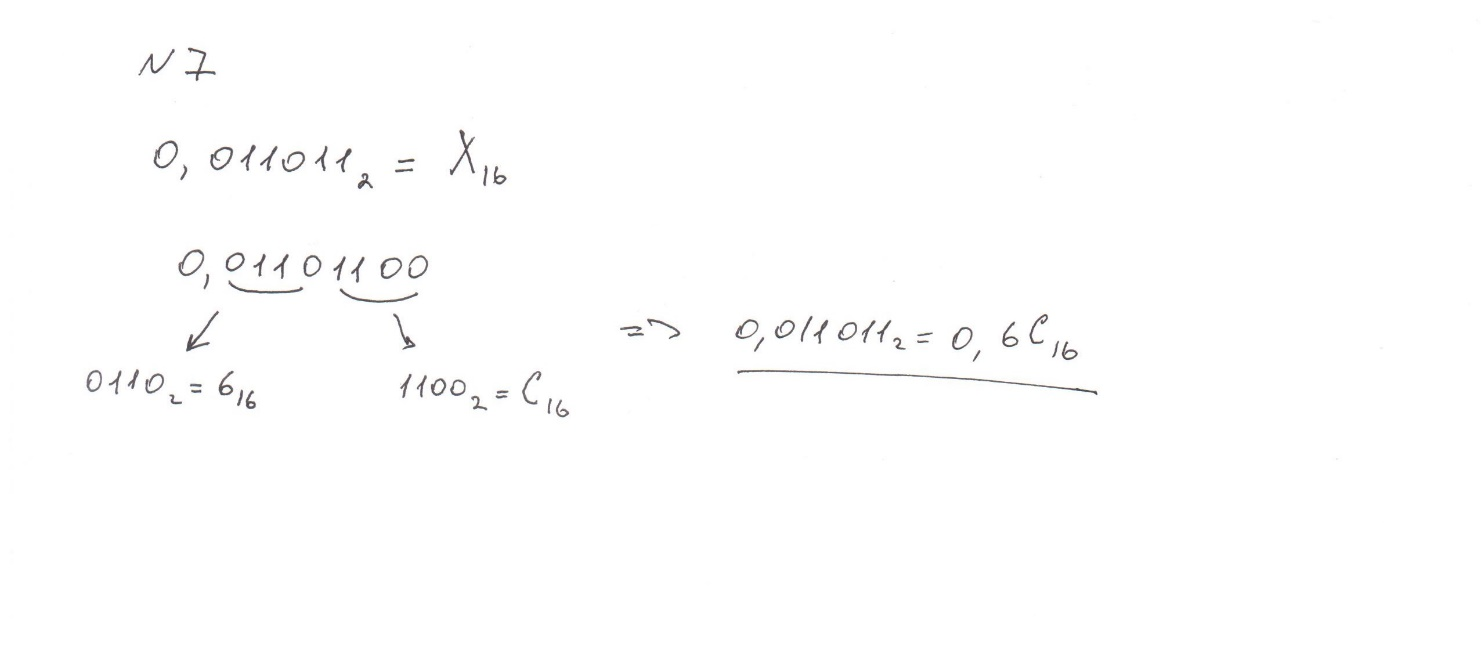 N 7
0, 011011₂ = X₁₆
0, 01101100
0110₂ = 6₁₆ 1100₂ = C₁₆ => 0,011011₂ = 0, 6C₁₆